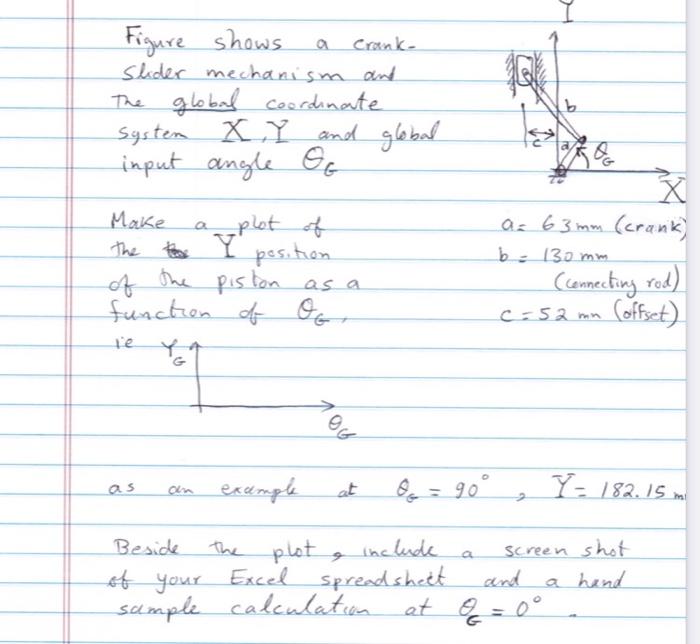 Figure shows a crank-
slider mechanism and
The global coordinate
system X, Y and global
input angle θG
Y
b
c
a
θG
X
Make a plot of
the Y position
of the piston as a
function of θG,
ie YG
θG
a = 63mm (crank)
b = 130 mm
(connecting rod)
c = 52 mm (offset)
as an example at θG = 90°, Y = 182.15 m
Beside the plot, include a screen shot
of your Excel spreadsheet and a hand
sample calculation at θG = 0°.